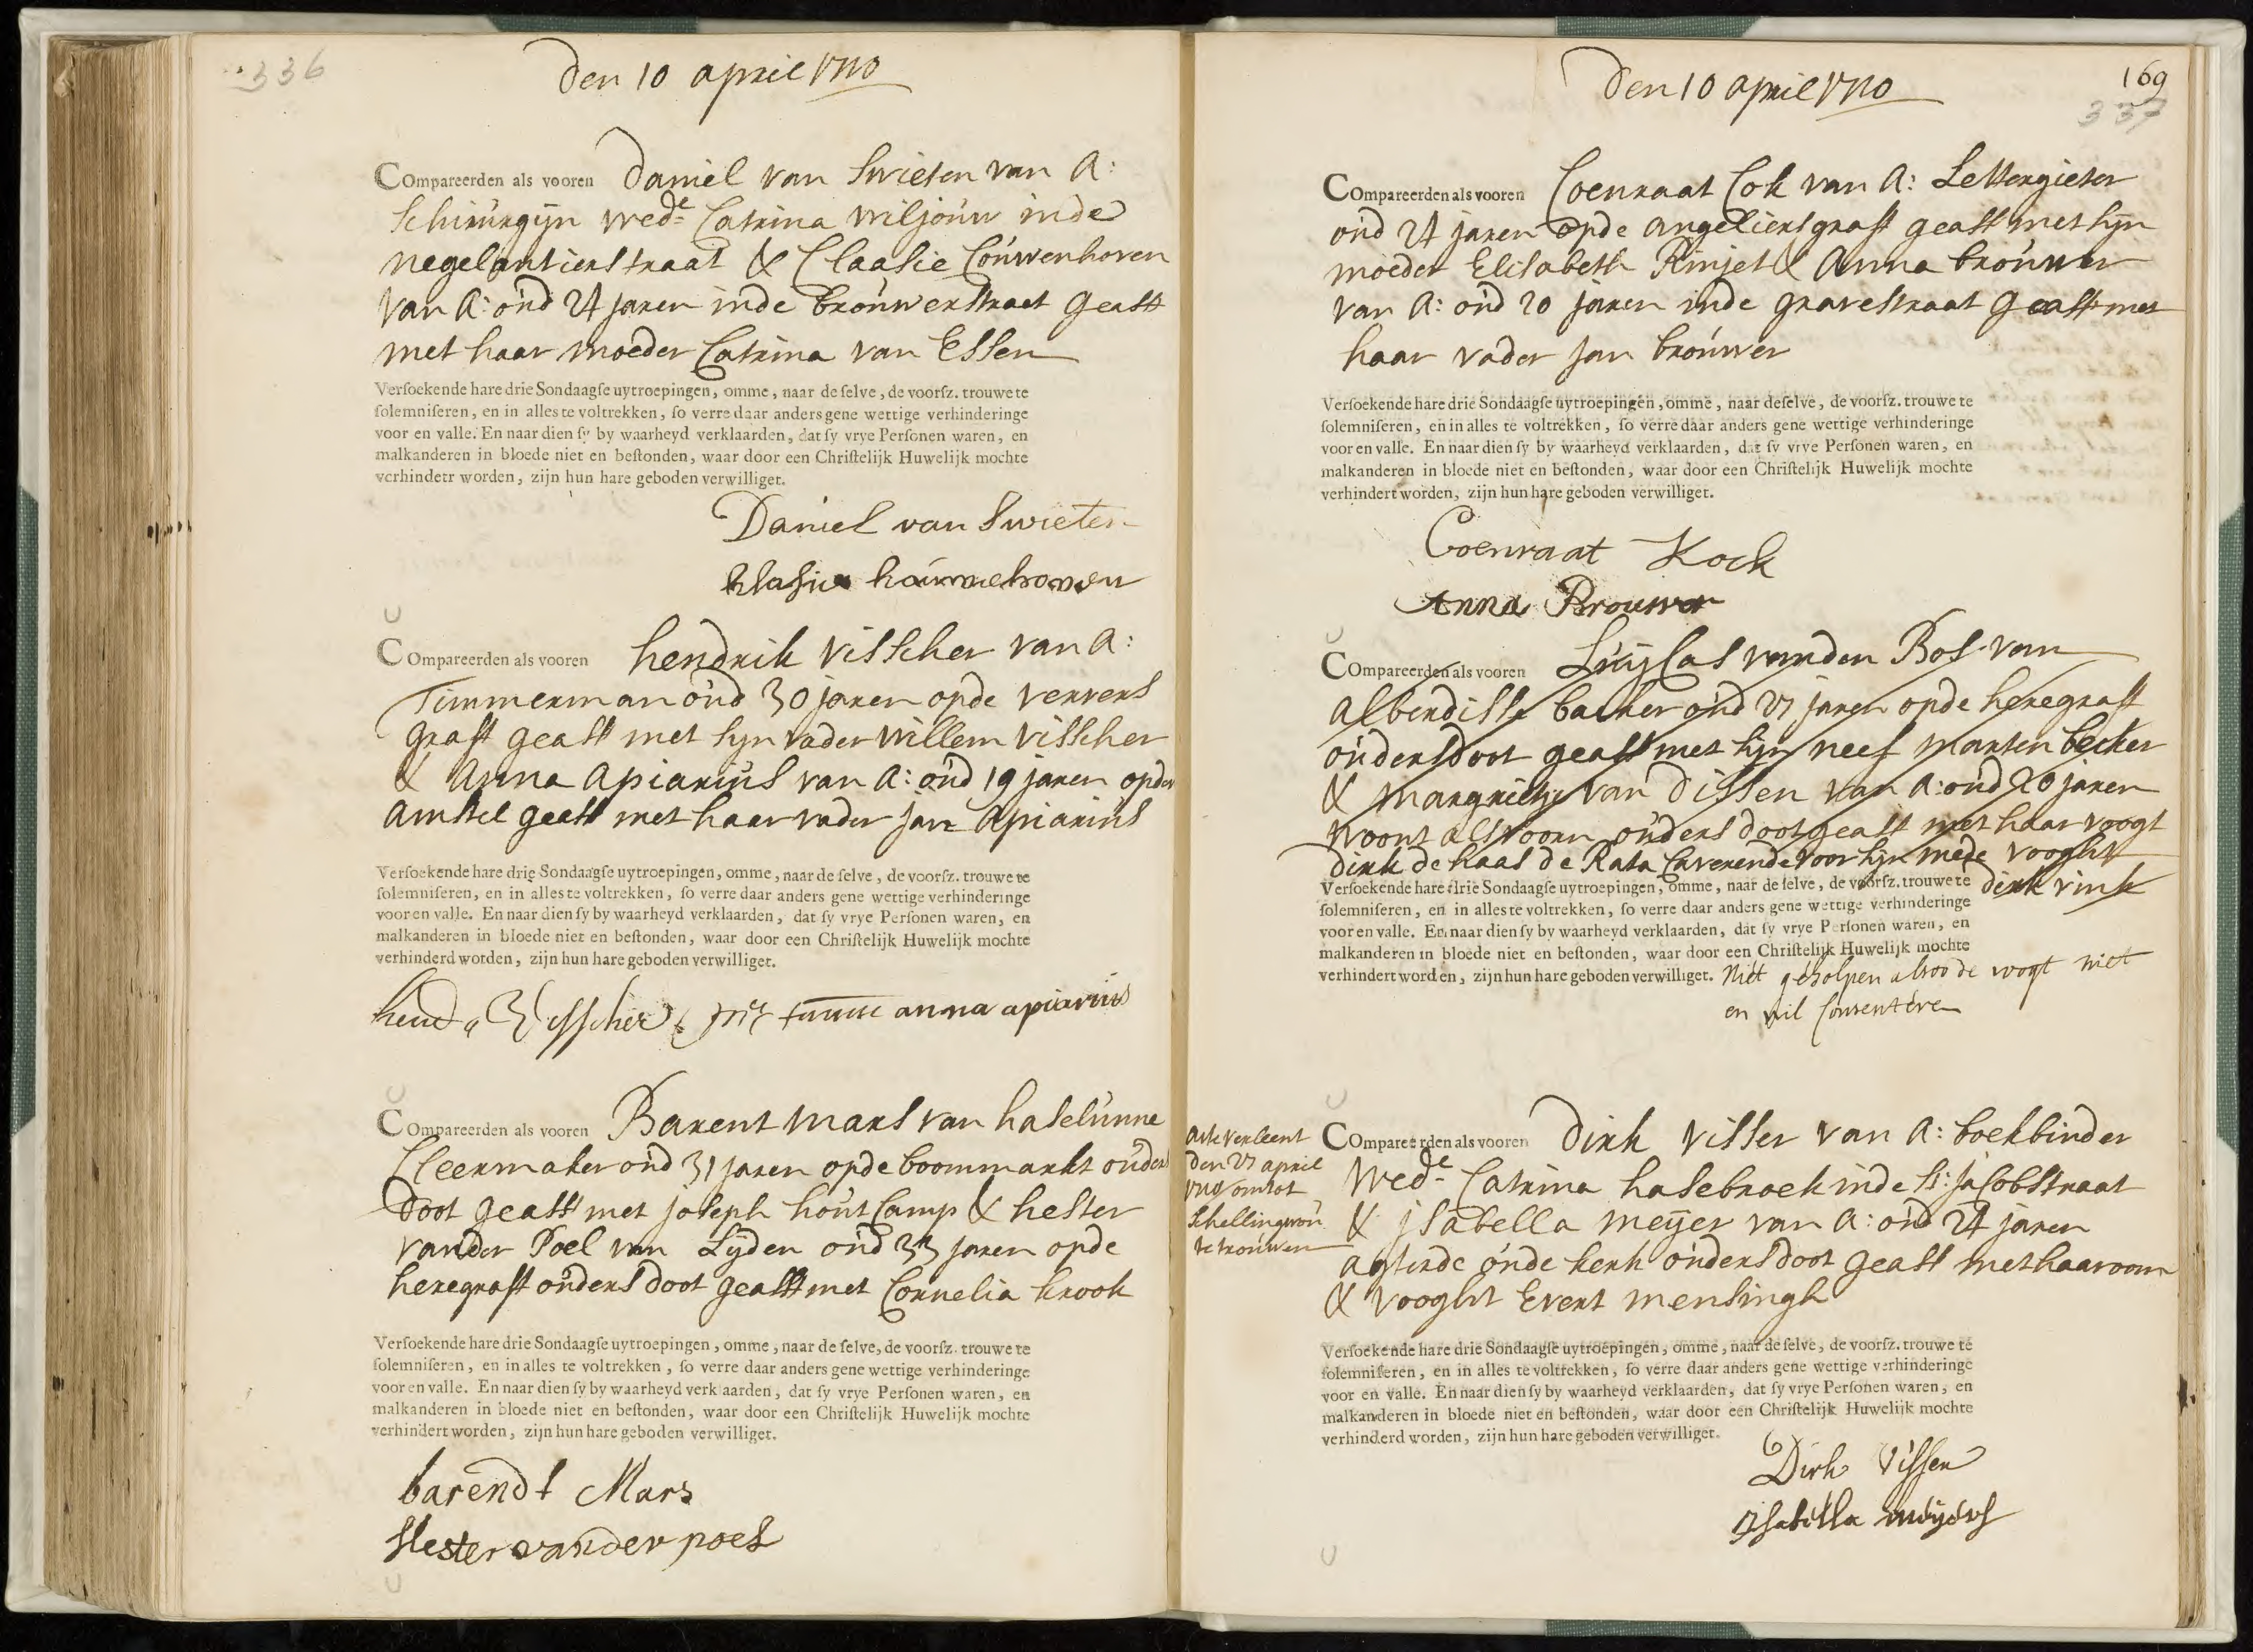 336
Den 10 april 1710
Compareerden als vooren Daniel van Swieten van A:
Schirurgijn wede Catrina Wiljouw inde
negelantierstraat & Claasie Couwenhoven
van A: oud 24 jaren inde brouwerstraet geast
met haar moeder Catrina van Essen
Versoekende hare drie Sondaagse uytroepingen, omme, naar de selve, de voorsz. trouwe te
solemniseren, en in alles te voltrekken, so verre daar anders gene wettige verhinderinge
voor en valle. En naar dien sy by waarheyd verklaarden, dat sy vrye Personen waren, en
malkanderen in bloede niet en bestonden, waar door een Christelijk Huwelijk mochte
verhindert worden, zijn hun hare geboden verwilliget.
Daniel van Swieten
Compareerden als vooren hendrik Visscher van A:
Timmerman oud 30 jaren opde ververs
graft geast met sijn vader Willem Visscher
& Anna Apiarius van A: oud 19 jaren opden
Amstel geast met haar vader Jan Apiarius
Versoekende hare drie Sondaagse uytroepingen, omme, naar de selve, de voorsz. trouwe te
solemniseren, en in alles te voltrekken, so verre daar anders gene wettige verhinderinge
voor en valle. En naar dien sy by waarheyd verklaarden, dat sy vrye Personen waren, en
malkanderen in bloede niet en bestonden, waar door een Christelijk Huwelijk mochte
verhinderd worden, zijn hun hare geboden verwilliget.
hend Visscher anna apiarius
Compareerden als vooren Barent Mars van haselunne
Cleermaker oud 31 jaren opde boommarkt ouders
doot geast met Joseph houtcamp & hester
vander Poel van Lyden oud 33 jaren opde
heregraft ouders doot geast met Cornelia krook
Versoekende hare drie Sondaagse uytroepingen, omme, naar de selve, de voorsz. trouwe te
solemniseren, en in alles te voltrekken, so verre daar anders gene wettige verhinderinge
voor en valle. En naar dien sy by waarheyd verklaarden, dat sy vrye Personen waren, en
malkanderen in bloede niet en bestonden, waar door een Christelijk Huwelijk mochte
verhindert worden, zijn hun hare geboden verwilliget.
barendt Mars
Hester van der poel
Den 10 april 1710
169
337
Compareerden als vooren Coenraat Cok van A: Lettergieter
oud 24 jaren opde angeliersgraft geast met sijn
moeder Elisabeth Rinjet & Anna brouwer
van A: oud 20 jaren inde gravestraat geast met
haar vader Jan brouwer
Versoekende hare drie Sondaagse uytroepingen, omme, naar de selve, de voorsz. trouwe te
solemniseren, en in alles te voltrekken, so verre daar anders gene wettige verhinderinge
voor en valle. En naar dien sy by waarheyd verklaarden, dat sy vrye Personen waren, en
malkanderen in bloede niet en bestonden, waar door een Christelijk Huwelijk mochte
verhindert worden, zijn hun hare geboden verwilliget.
Coenraat Kock
Anna Brouwer
Compareerden als vooren Luijcas vanden Bos van
backer oud 27 jaren opde heregraft
ouders doot geast met sijn neef Marten becker
& Margrietje van Dissen van A: oud 20 jaren
woont als vooren ouders doot geast met haar voogt
dirk de haas de Rata Caverende voor sijn mede vooght
dirk vink
Versoekende hare drie Sondaagse uytroepingen, omme, naar de selve, de voorsz. trouwe te
solemniseren, en in alles te voltrekken, so verre daar anders gene wettige verhinderinge
voor en valle. En naar dien sy by waarheyd verklaarden, dat sy vrye Personen waren, en
malkanderen in bloede niet en bestonden, waar door een Christelijk Huwelijk mochte
verhindert worden, zijn hun hare geboden verwilliget. Niet geholpen alsoo de voogt niet
en wil Consenteren
Acte verleent
den 27 april
1710 om tot
Schellingwou
te trouwen
Compareerden als vooren Dirk Visser van A: boekbinder
Wede Catrina hasebroek inde St: Jacobstraat
& Jsabella Meijer van A: oud 24 jaren
agterde oude kerk ouders doot geast met haar oom
& vooght Evert Mensingh
Versoekende hare drie Sondaagse uytroepingen, omme, naar de selve, de voorsz. trouwe te
solemniseren, en in alles te voltrekken, so verre daar anders gene wettige verhinderinge
voor en valle. En naar dien sy by waarheyd verklaarden, dat sy vrye Personen waren, en
malkanderen in bloede niet en bestonden, waar door een Christelijk Huwelijk mochte
verhinderd worden, zijn hun hare geboden verwilliget.
Dirk Visser
Isabella meijers